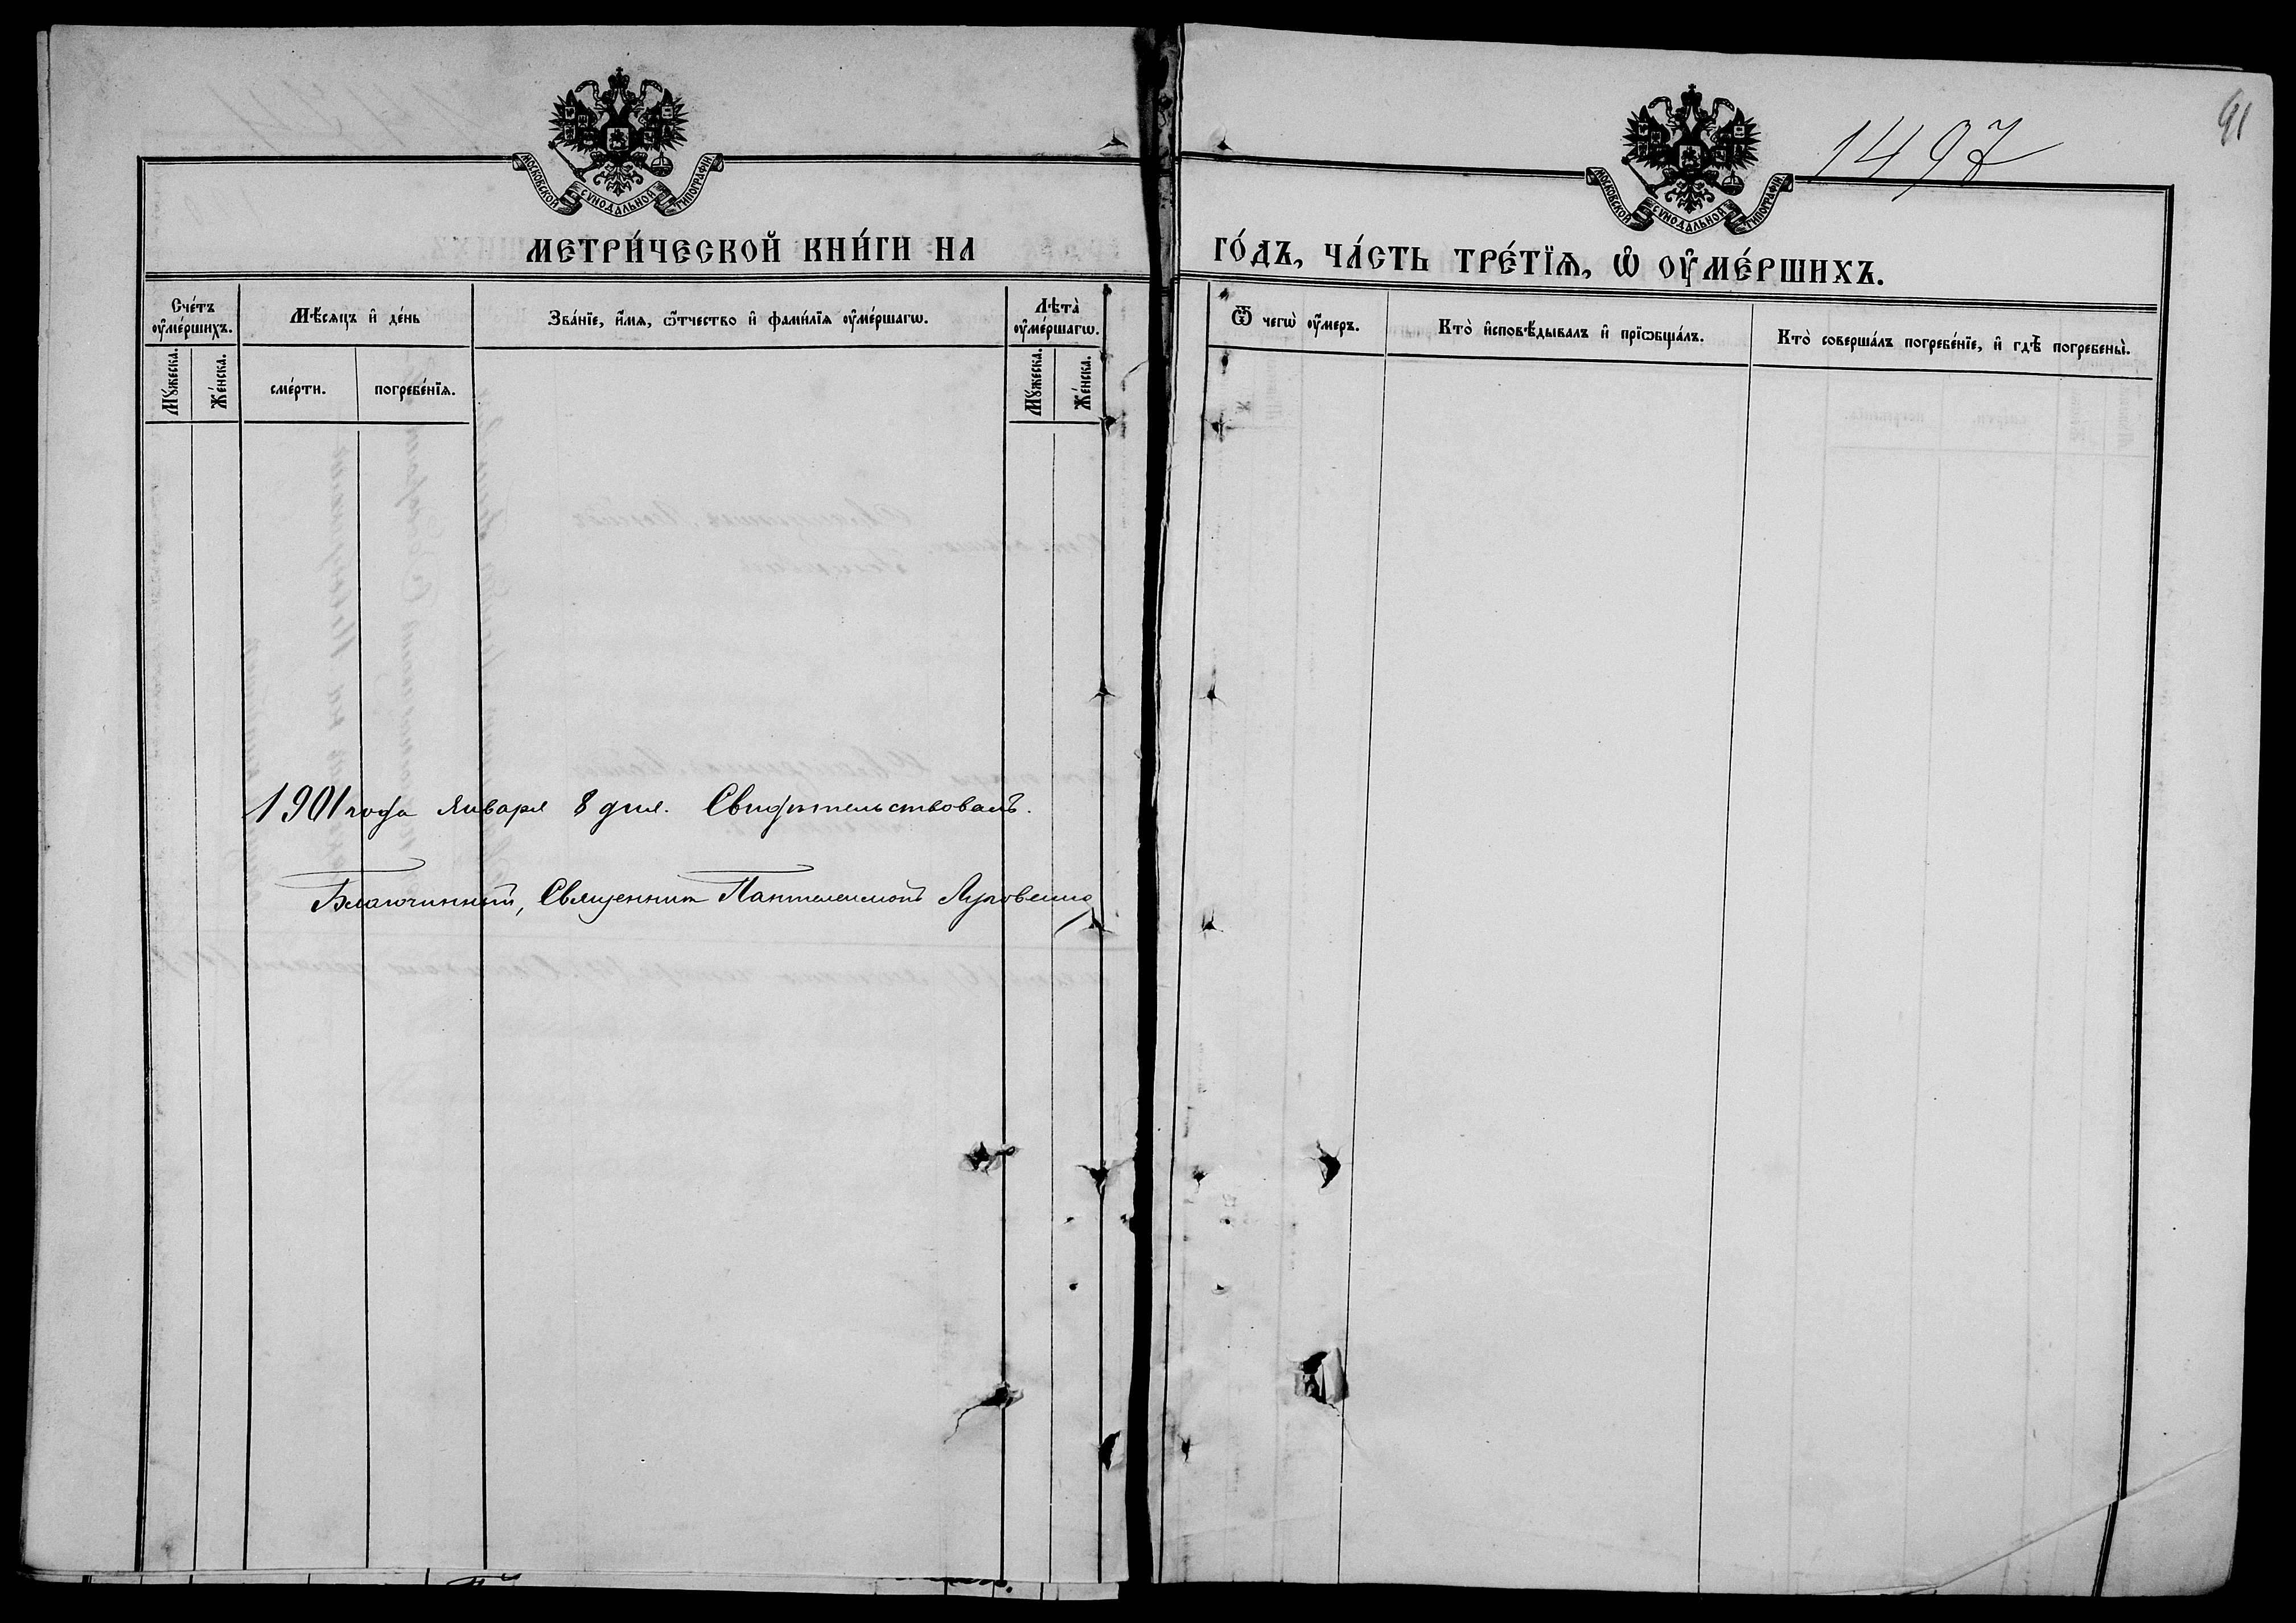 1497
91
МОСКОВСКОЙ СѴНОДАЛЬНОЙ ТИПОГРАФІИ
МОСКОВСКОЙ СѴНОДАЛЬНОЙ ТИПОГРАФІИ
МЕТРИ́ЧЕСКОЙ КНИ́ГИ НА
ГО́ДЪ, ЧА́СТЬ ТРЕ́ТЇѦ, Ѡ҆ ОУ҆МЕ́РШИХЪ.
Сче́тъ оу҆ме́ршихъ.
Мѣ́сяцъ и҆ де́нь
Зва́нїе, и҆́мя, ѻ҆́тчество и҆ фами́лїя оу҆ме́ршагѡ.
Лѣта̀ оу҆ме́ршагѡ.
Ѿ чегѡ̀ оу҆́меръ.
Кто̀ и҆сповѣ́дывалъ и҆ прїѡбща́лъ.
Кто̀ соверша́лъ погребе́нїе, и҆ гдѣ̀ погребены̀.
Мꙋ́жеска.
Же́нска.
сме́рти.
погребе́нїя.
Мꙋ́жеска.
Же́нска.
1901 года Января 8 дня. Свидѣтельствовалъ.
Благочинный, Священник Пантелеимонъ Луковенко